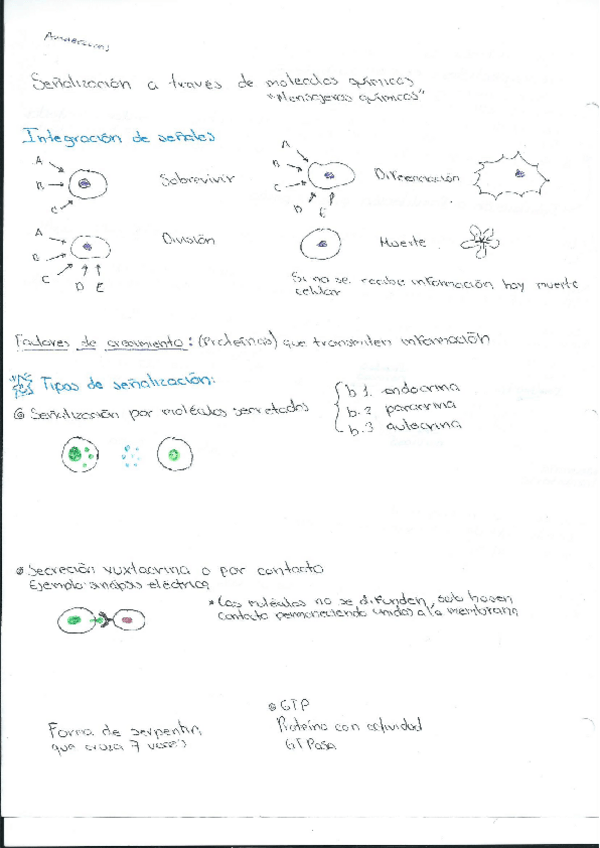 Señalización a través de moleculas químicas
"Mensajeros químicos"
Integración de señales
A
B
C
Sobrevivir
A
B
C
D
E
Diferenciación
A
B
C
D
E
División
Muerte
Si no se recibe información hay muerte
celular
Factores de crecimiento: (Proteínas) que transmiten información
Tipos de señalización:
Señalización por moléculas secretadas
b.1. endocrina
b.2 paracrina
b.3 autocrina
Secreción yuxtacrina o por contacto
Ejemplo: sinápsis eléctrica
* Las moléculas no se difunden, solo hacen
contacto permaneciendo unidas a la membrana
Forma de serpentin
que cruza 7 veces
GTP
Proteína con actividad
GTPasa